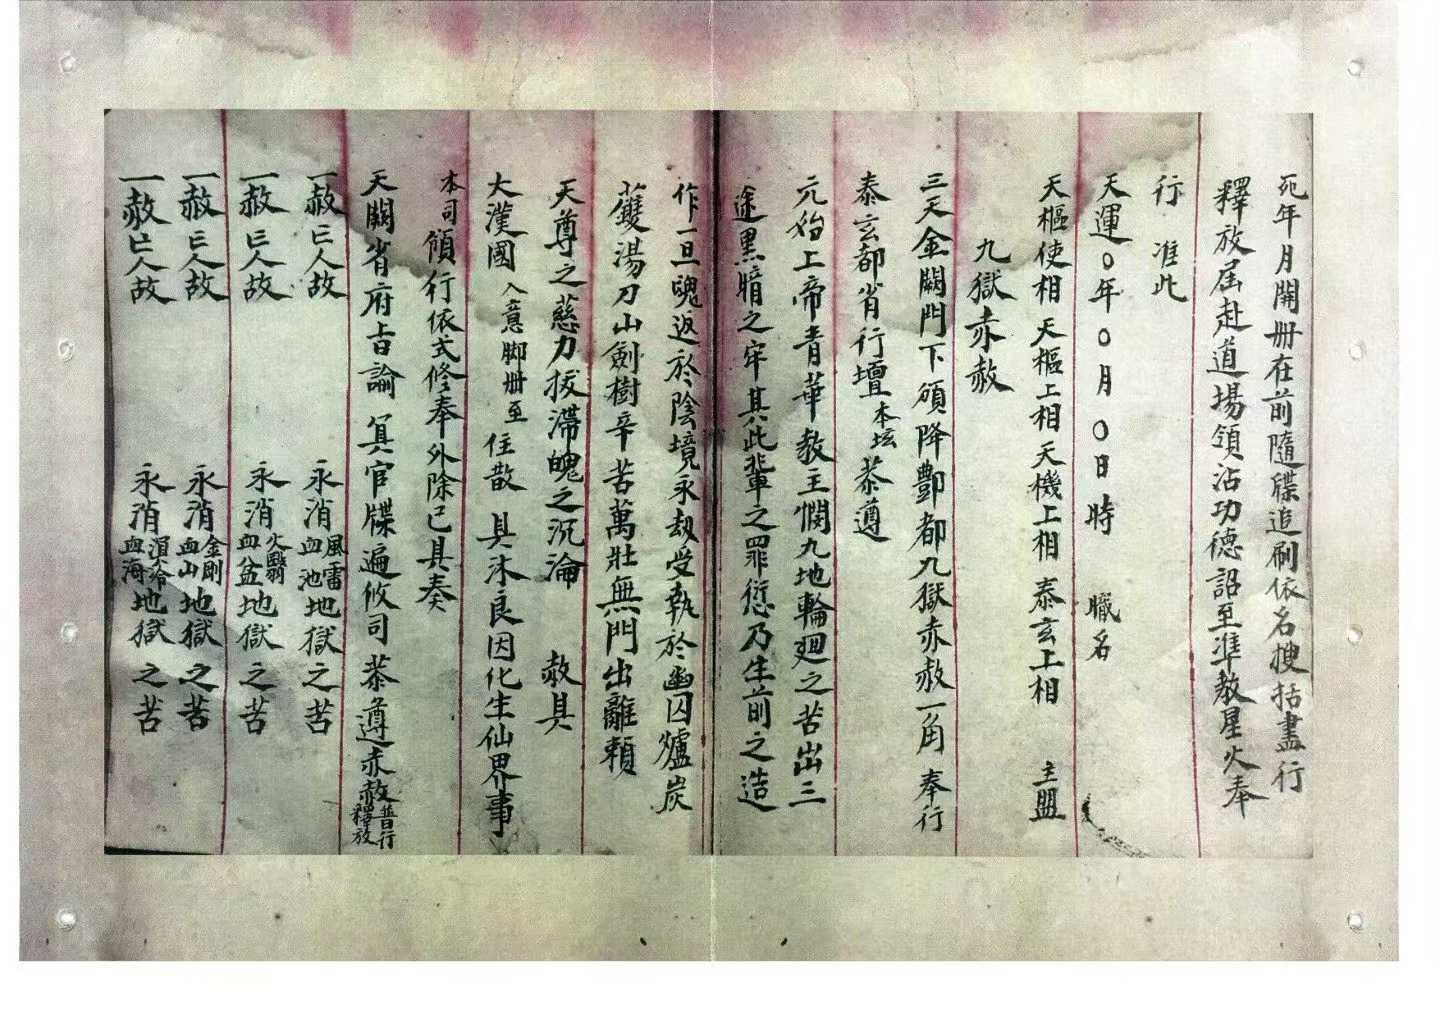 死年月開册在前隨牒追刷依名搜括盡行
釋放屆赴道場領沾功德詔至準教星火奉
行 准此
天運〇年〇月〇日時 職名
天樞使相 天樞上相 天機上相 泰玄上相 主盟
九獄赤赦
三天金闕門下頒降酆都九獄赤赦一角 奉行
泰玄都省行壇本坛恭遵
元始上帝青華教主憫九地輪廻之苦出三
途黑暗之牢其此輩之罪愆乃生前之造
作一旦魄返於陰境永劫受執於幽囚爐炭
鑊湯刀山劍樹辛苦萬壯無門出離賴
天尊之慈力拔滯魄之沉淪 赦具
大漢國入意脚册至 住散 具沐良因化生仙界事
本司傾行依式修奉外除已具奏
天闕省府㫖諭 冥官牒遍攸司 恭遵赤赦普行釋放
一赦亡人故 永消風雷血池地獄之苦
一赦亡人故 永消火翳血盆地獄之苦
一赦亡人故 永消金剛血山地獄之苦
一赦亡人故 永消溟泠血海地獄之苦